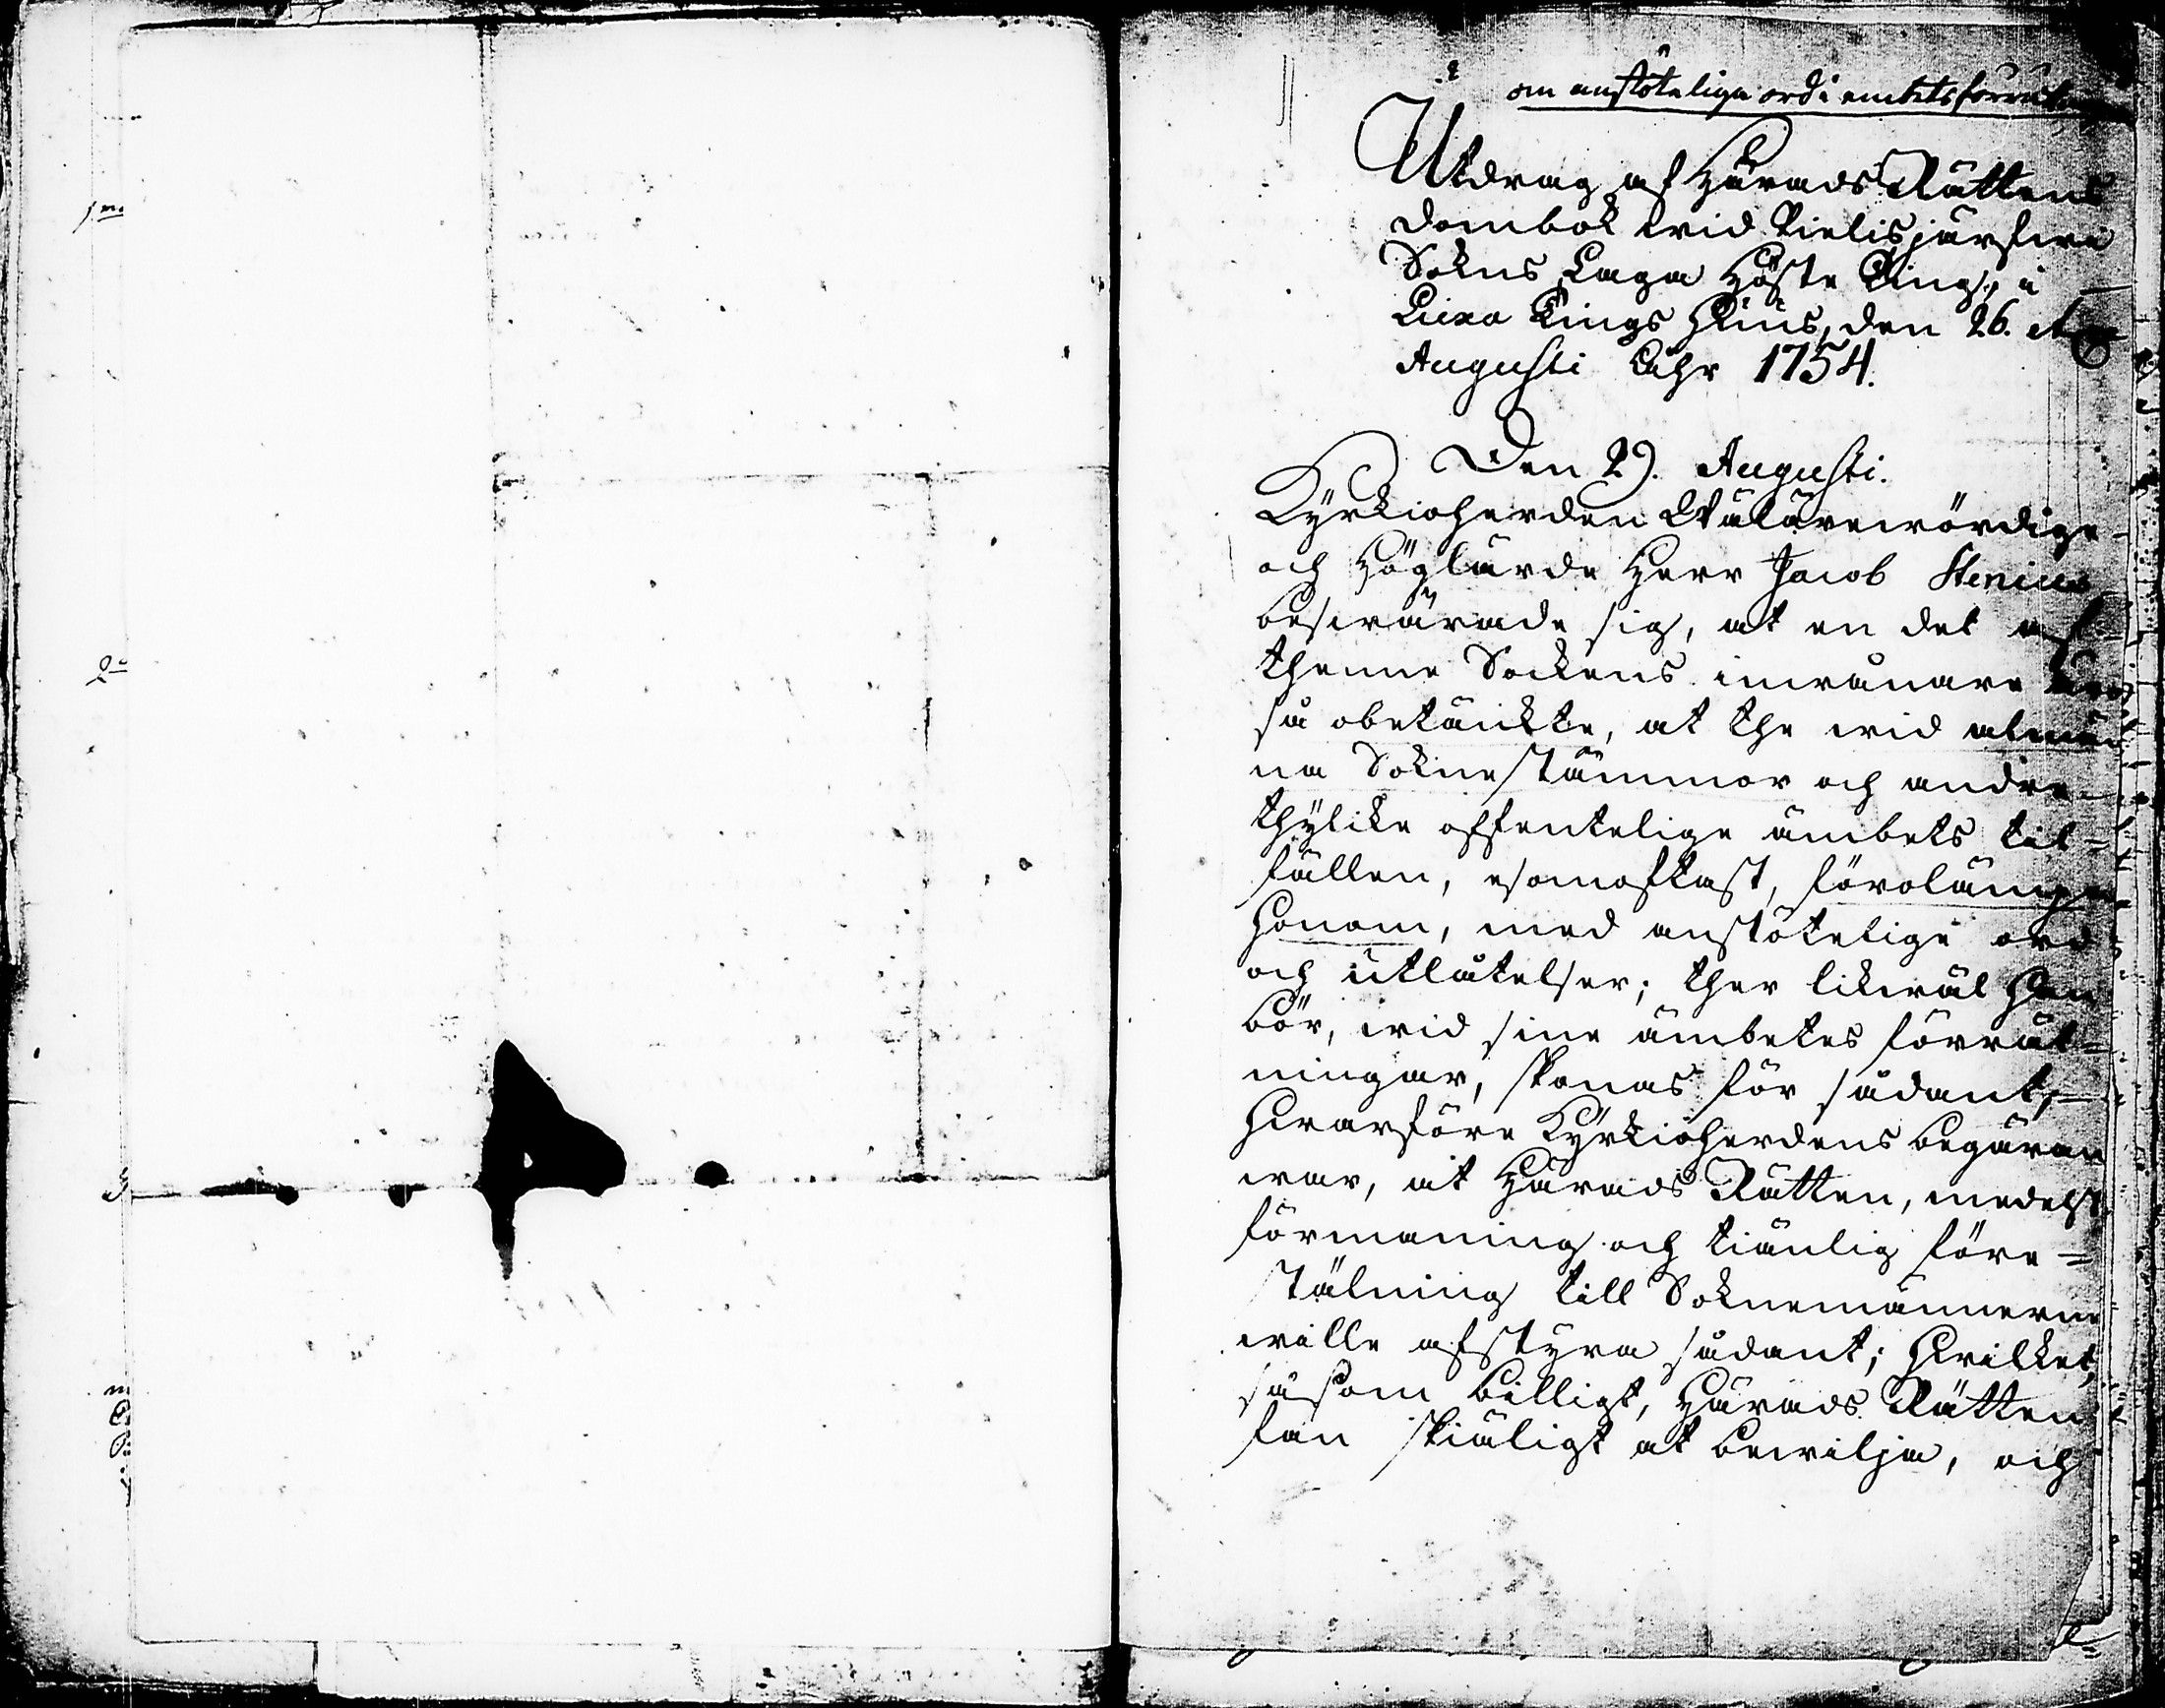 om anstöteliga ord i embets förrätt
Utdrag af Härads Rättens
dombok wid Pielisjärfwi
Sokns Laga Höste Ting, i
Liexa Tings Huus, den 26.
Augusti Åhr 1754.
Den 29. Augusti.
Kyrkioherden Wälärewördige
och Höglärde Herr Jacob Stenius
beswärade sig, at en del af
thenne Sockens inwånare
så obetänkte, at the wid almän
na Soknestämmor och andre
thylike offentelige ämbets til-
fällen, esomoftast, förolämpa
Honom, med anstötelige ord
och utlåtelser; ther likwäl Han
bör, wid sine ämbetes förrät-
ningar, skonas för sådant,
Hwarföre Kyrkioherdens begäran
war, at Härads Rätten, medelst
förmaning och tiänlig före-
stälning till Soknemännerne
wille afstyra sådant; Hwilket,
såsom billigt, Härads Rätten
fan skiäligt at bewilja, och
1mo
2o